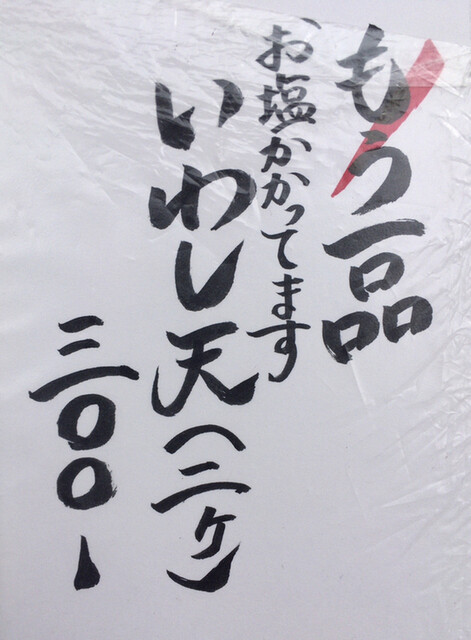 もう一品
お塩かかってます
いわし天(二ケ)
三〇〇-